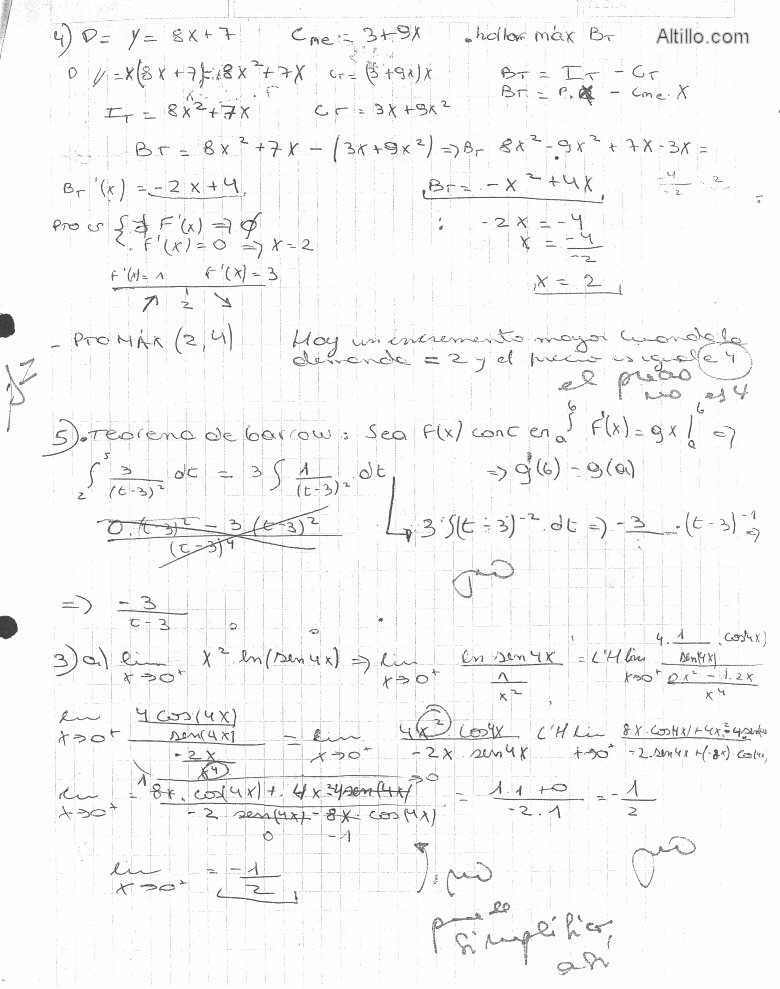 4) D = y = 8x + 7   Cme = 3 + 9x   . hallar máx BT   Altillo.com
D y = x(8x + 7) = 8x² + 7x   CT = (3 + 9x)x   BT = IT - CT
IT = 8x² + 7x   CT = 3x + 9x²   BT = P. x - Cme. x
BT = 8x² + 7x - (3x + 9x²) => BT 8x² - 9x² + 7x - 3x =
BT'(x) = -2x + 4   BT = -x² + 4x
Pto cs { ∄ F'(x) => ∅   : -2x = -4
. F'(x) = 0 => x = 2   x = -4/-2
F'(x) = 1   F'(x) = 3   x = 2
↗ 2 ↘
- PTO MÁX (2,4)   Hay un incremento mayor cuando la
demanda = 2 y el precio es igual a 4
el precio
no es 4
5) . Teorema de barrow: Sea F(x) cont en ∫ F'(x) = gx | =>
∫ 3/(t-3)² dt = 3 ∫ 1/(t-3)² dt   => g(b) - g(a)
0.(t-3)² - 3 (t-3)² / (t-3)⁴   3 ∫(t-3)⁻² dt => -3 . (t-3)⁻¹ =>
=> -3/(t-3)
3) a) lim x→0⁺ x² ln(sen4x) => lim x→0⁺ ln sen4x / (1/x²) = L'H lim x→0⁺ 4. 1/sen(4x) . cos(4x) / (0x² - 1.2x / x⁴)
lim x→0⁺ (4cos(4x)/sen(4x)) / (-2x/x⁴) = lim x→0⁺ 4x² cos4x / -2x sen4x   L'H lim x→0⁺
lim x→0⁺ = 8x. cos(4x) + 4x² -4sen(4x) / -2 sen(4x) - 8x. cos(4x) = 1.1+0 / -2.1 = -1/2
0   -1
lim x→0⁺ = -1/2
simplificar
así